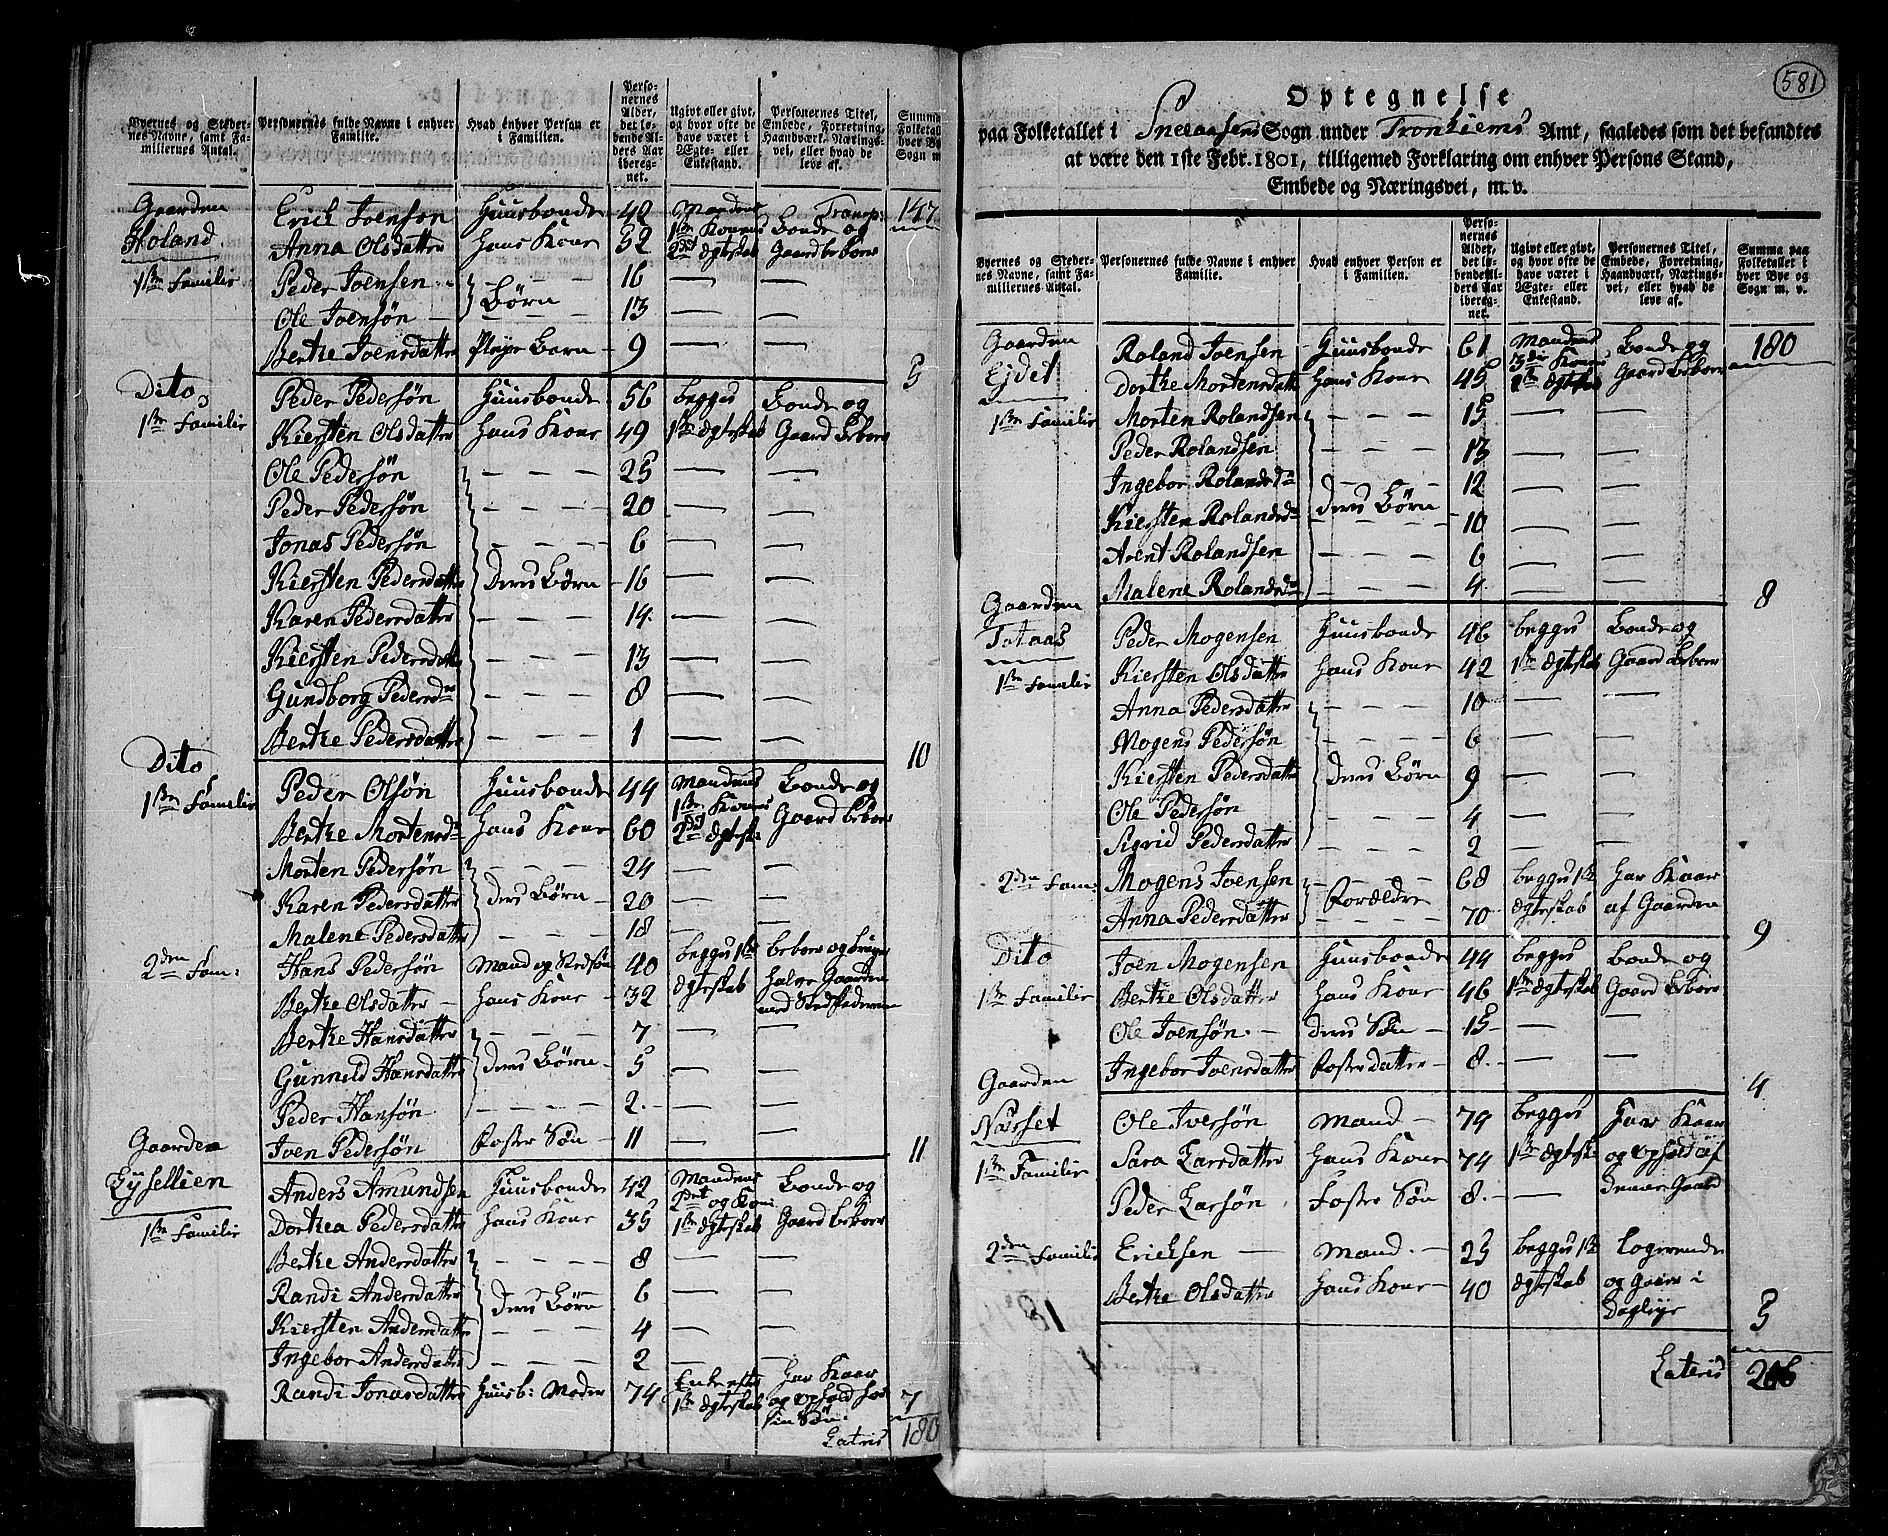 Byernes og Stedernes Navne, samt Familiernes Antal.
Personernes fulde Navne i enhver Familie.
Hvad enhver Person er i Familien.
Personernes Alder, det løbende Alders Aar iberegnet.
Ugivt eller givt, og hvor ofte de have været i Ægte- eller Enkestand.
Personernes Titel, Embede, Forretning, Haandværk, Næringsvei, eller hvad de leve af.
Gaarden Erich Joensøn Huusbonde 40 Mandens Transp: 147
Holand Anna Olsdatter Hans Kone 52 1ste Konens 2det Ægteskab Bonde og Gaardbeboer
1ste Familie Peder Joensen 16
Ole Joensøn Børn 13
Berthe Joensdatter Pleye Barn 9
5
Dito Peder Pedersøn Huusbonde 56 begges Bonde og
1ste Familie Kiersten Olsdatter Hans Kone 49 1ste Ægteskab Gaardbeboer
Ole Pedersøn 25
Peder Pedersøn 20
Jonas Pedersøn 6
Kiersten Pedersdatter Deres Børn 16
Karen Pedersdatter 14
Kiersten Pedersdatter 13
Gundborg Pedersdr 8
Berthe Pedersdatter 1
10
Dito Peder Olsøn Huusbonde 44 Mandens Bonde og
1ste Familie Berthe Mortensdr Hans Kone 60 1ste Konens 2det Ægtesk: Gaard beboer
Morten Pedersøn 24
Karen Pedersdatter Deres Børn 20
Malene Pedersdatter 18
2den Fam: Hans Pedersøn Mand og Stedsøn 40 begges 1ste beboer og bruger
Berthe Olsdatter Hans Kone 32 Ægteskab halve Gaarden med Stedfaderen
Berthe Hansdatter 7
Gunnild Hansdatter Deres Børn 5
Peder Hansøn 2
Joen Pedersøn Foster Søn 11
11
Gaarden
Gysellien Anders Amundsen Huusbonde 42 Mandens 2det og Kon: Bonde og
1ste Familie Dorthea Pedersdatter Hans Kone 35 1ste Ægteskab Gaard beboer
Berthe Andersdatter 8
Randi Andersdatter Deres Børn 6
Kiersten Andersdatter 4
Ingebor Andersdatter 2
Randi Jonasdatter Huusb: Moder 74 Enke efter 1ste Ægteskab Har Kaar og ophold hos sin Søn.
7
Lateris 180
581
Optegnelse
paa Folketallet i Sneaasens Sogn under Tronhiems Amt, saaledes som det befandtes
at være den 1ste Febr. 1801, tilligemed Forklaring om enhver Persons Stand,
Embede og Næringsvei, m. v.
Byernes og Stedernes Navne, samt Familiernes Antal.
Personernes fulde Navne i enhver Familie.
Hvad enhver Person er i Familien.
Personernes Alder, det løbende Alders Aar iberegnet.
Ugivt eller givt, og hvor ofte de have været i Ægte- eller Enkestand.
Personernes Titel, Embede, Forretning, Haandværk, Næringsvei, eller hvad de leve af.
Summa paa Folketallet i hver Bye og Sogn m. v.
Gaarden Roland Joensen Huusbonde 61 Mandens Bonde og 180
Ejdet Dorthe Mortensdatt Hans Kone 45 3die Konens 1ste Ægteskab Gaard beboer
1ste Familie Morten Rolandsen 15
Peder Rolandsen 13
Ingebor Rolandsdr 12
Kiersten Rolandsdr Deres Børn 10
Arent Rolandsen 6
Malene Rolandsdr 4
8
Gaarden
Totaas Peder Mogensen Huusbonde 46 begges Bonde og
1ste Familie Kiersten Olsdatter Hans Kone 42 1ste Ægteskab Gaard beboer
Anna Pedersdatter 10
Mogens Pedersøn 6
Kiersten Pedersdatter Deres Børn 9
Ole Pedersøn 4
Sigrid Pedersdatter 2
2den Fam: Mogens Joensen 68 begges 1ste Har Kaar
Anna Pedersdatter Forældre 70 Ægteskab af Gaarden
9
Dito Joen Mogensen Huusbonde 44 begges Bonde og
1ste Familie Berthe Olsdatter Hans Kone 46 1ste Ægteskab Gaard beboer
Ole Joensøn Deres Søn 15
Ingebor Joensdatter Foster datter 8
4
Gaarden
Nærset Ole Iversøn Mand 79 begges Har Kaar
1ste Familie Sara Larsdatter Hans Kone 74 1ste Ægtesk og ophold af
Peder Larsøn Foster Søn 8 denne Gaard
2den Familie Ericksen Mand 25 begges 1ste Logerende
Berthe Olsdatter Hans Kone 40 Ægteskab og gaaer i Dagleye
5
Lateris 206